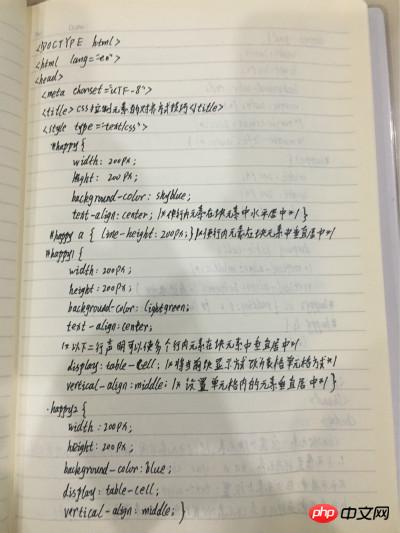 <!DOCTYPE html>
<html lang="en">
<head>
<meta charset="UTF-8">
<title>css控制元素的对齐方式技巧</title>
<style type="text/css">
#happy{
width: 200px;
height: 200px;
background-color: skyblue;
text-align: center; /*使行内元素在块元素中水平居中*/ }
#happy a { line-height: 200px; } /*使行内元素在块元素中垂直居中*/
#happy1 {
width: 200px;
height: 200px;
background-color: lightgreen;
text-align: center;
/*以下二行声明可以使多个行内元素在块元素中垂直居中*/
display: table-cell; /*将当前块显示方式改为表格单元格方式*/
vertical-align: middle; /* 设置单元格内的元素垂直居中*/ }
.happy2 {
width: 200px;
height: 200px;
background-color: blue;
display: table-cell;
vertical-align: middle; }
php中文网